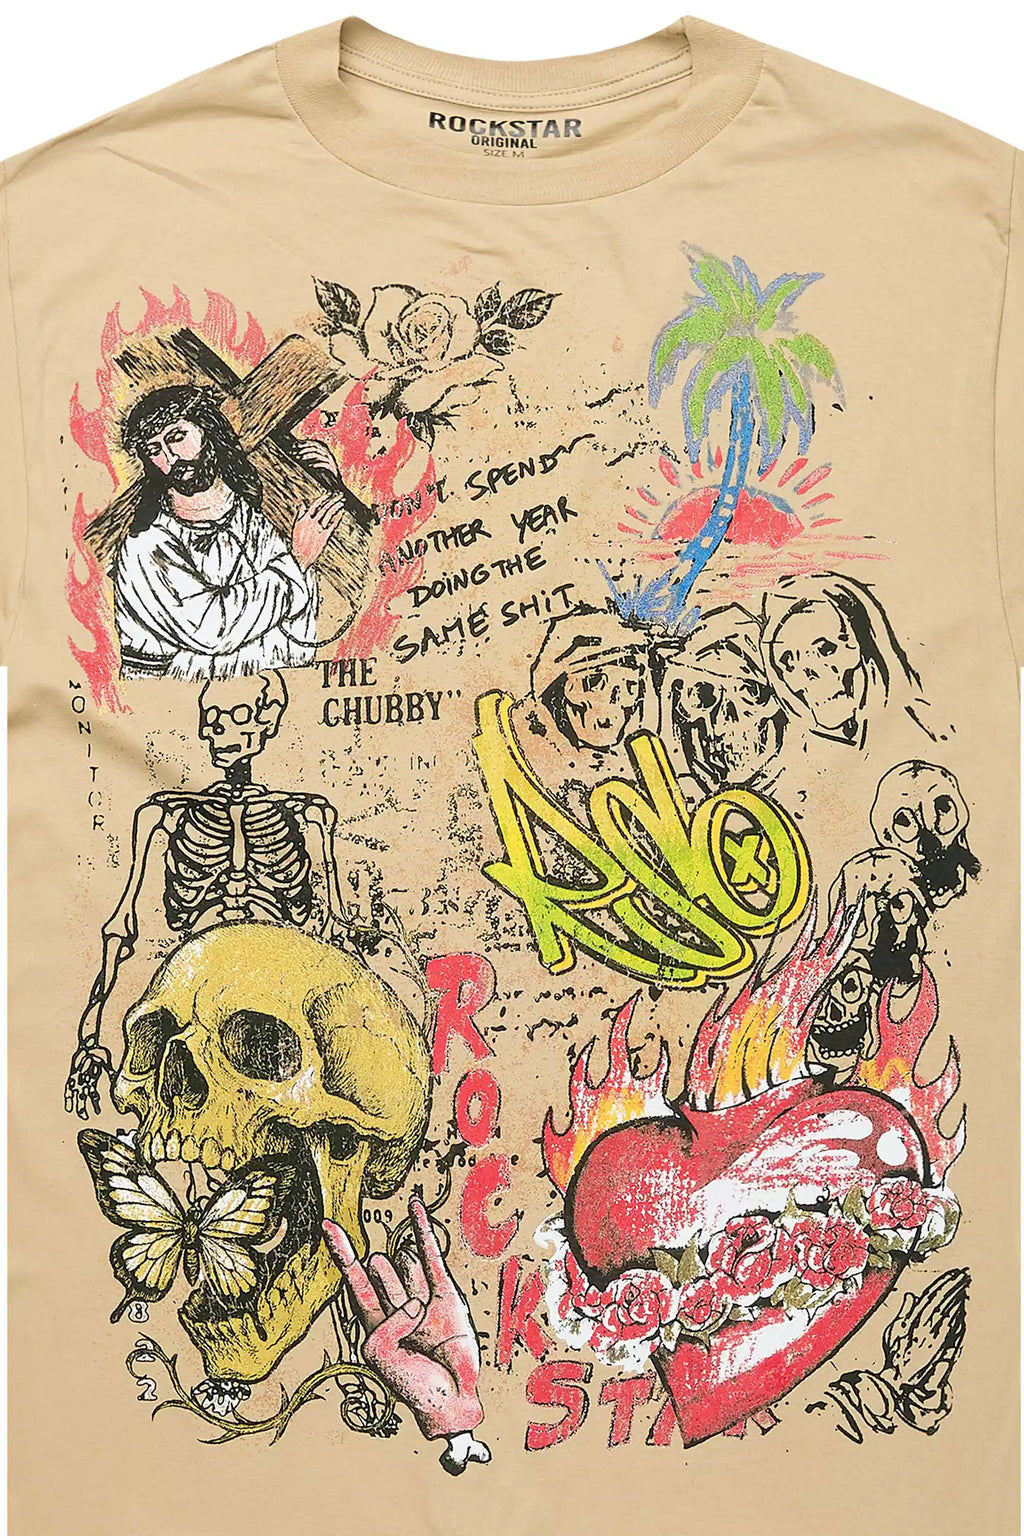 ROCKSTAR
ORIGINAL
SIZE M
DON'T SPEND
ANOTHER YEAR
DOING THE
SAME SHIT
THE
CHUBBY"
MONITOR
RSO
ROCK
STAR
009
8
2